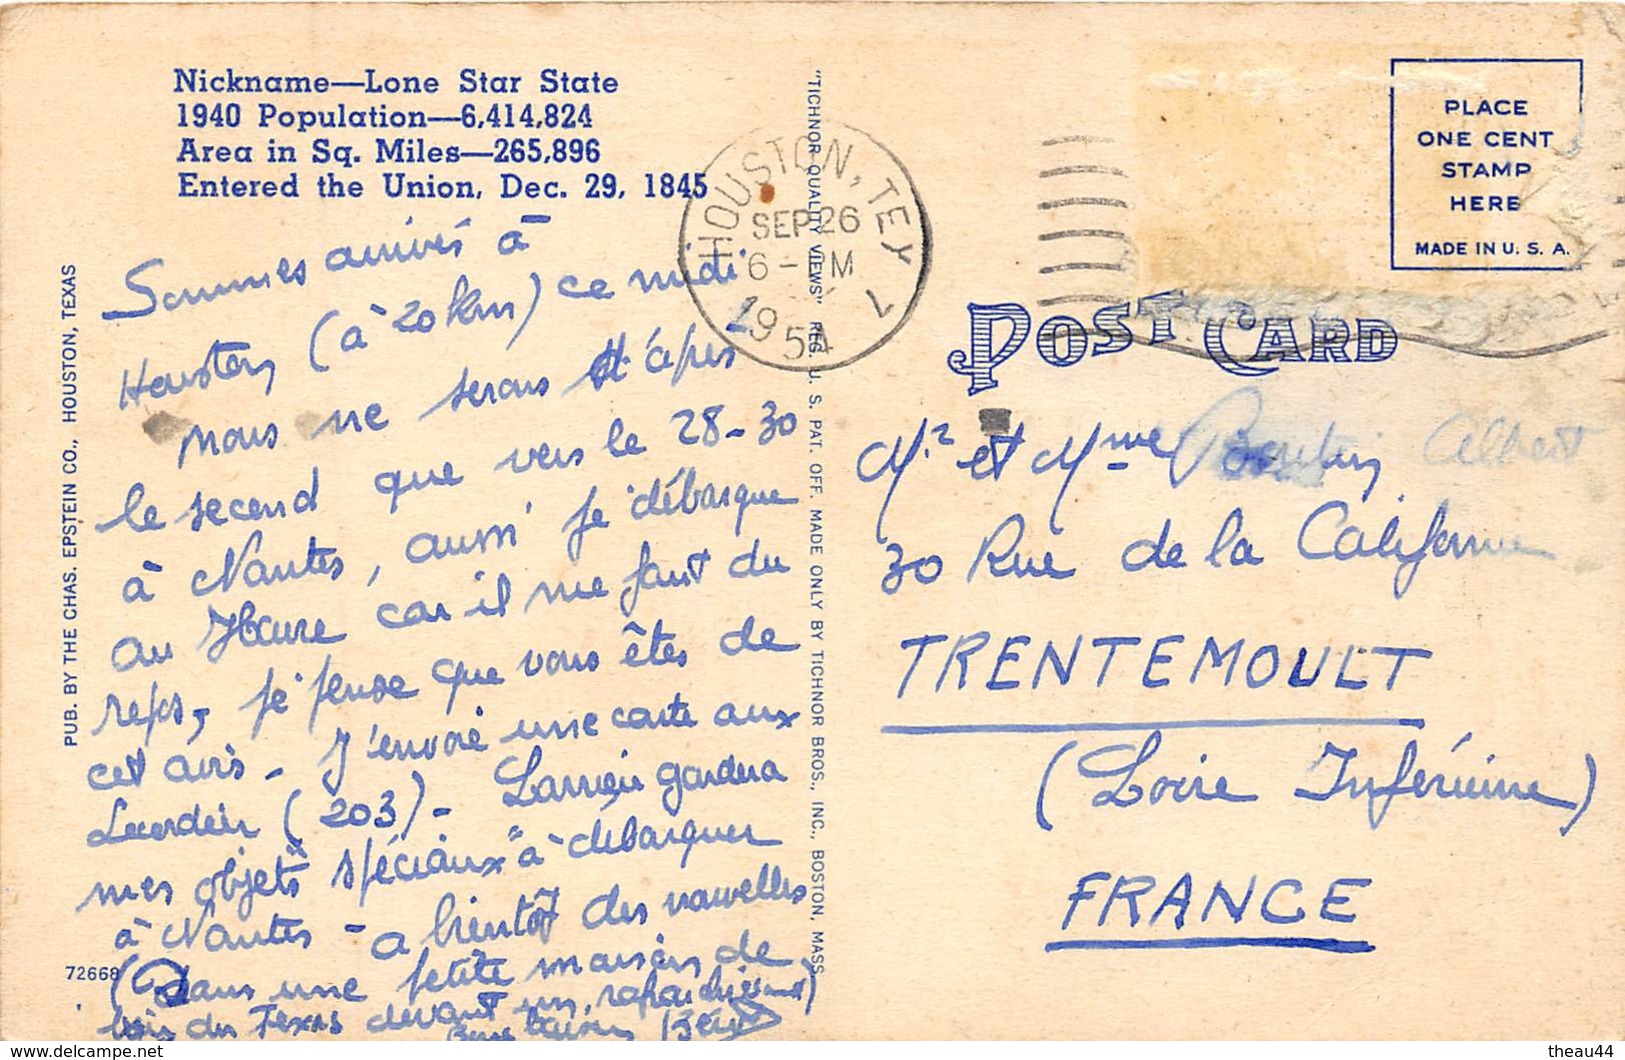 Nickname—Lone Star State
1940 Population—6,414,824
Area in Sq. Miles—265,896
Entered the Union, Dec. 29, 1845
Sommes arrivés à
Houston (à 20 km) ce midi
Nous ne serons
le second que vers le 28-30
à Nantes, aussi je débarque
au Havre car il me faut du
repos, je pense que vous êtes de
cet avis - J'envoie une carte aux
(203) - gardera
mes objets "spéciaux" à débarquer
à Nantes - a bientôt des nouvelles
(Dans une petite maison de
bois du Texas devant un rafraichissement)
PUB. BY THE CHAS. EPSTEIN CO., HOUSTON, TEXAS
72668
"TICHNOR QUALITY VIEWS" REG. U. S. PAT. OFF. MADE ONLY BY TICHNOR BROS., INC., BOSTON, MASS.
HOUSTON, TEX
SEP 26
6-PM
1954
7
PLACE
ONE CENT
STAMP
HERE
MADE IN U. S. A.
POST CARD
Mr et Mme Albert
30 Rue de la Californie
TRENTEMOULT
(Loire Inférieure)
FRANCE
theau44